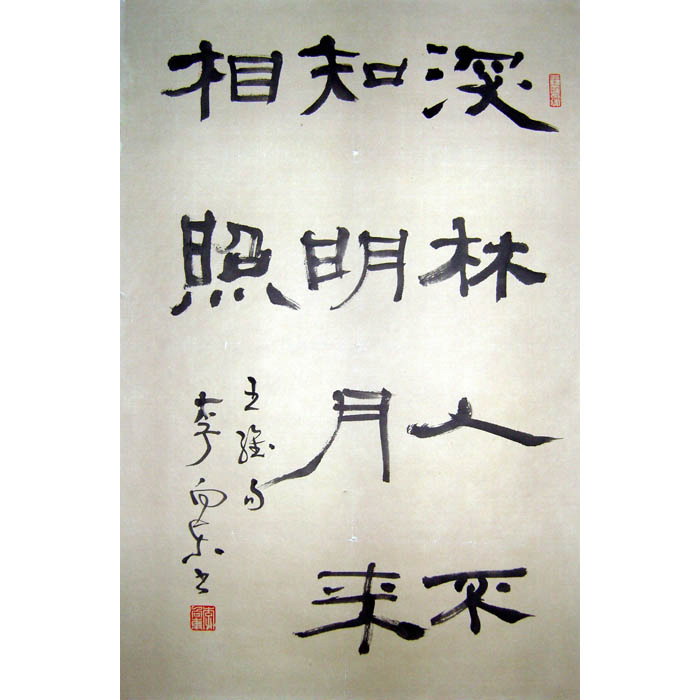 深林人不
知明月来
相照
王維句
李向东书